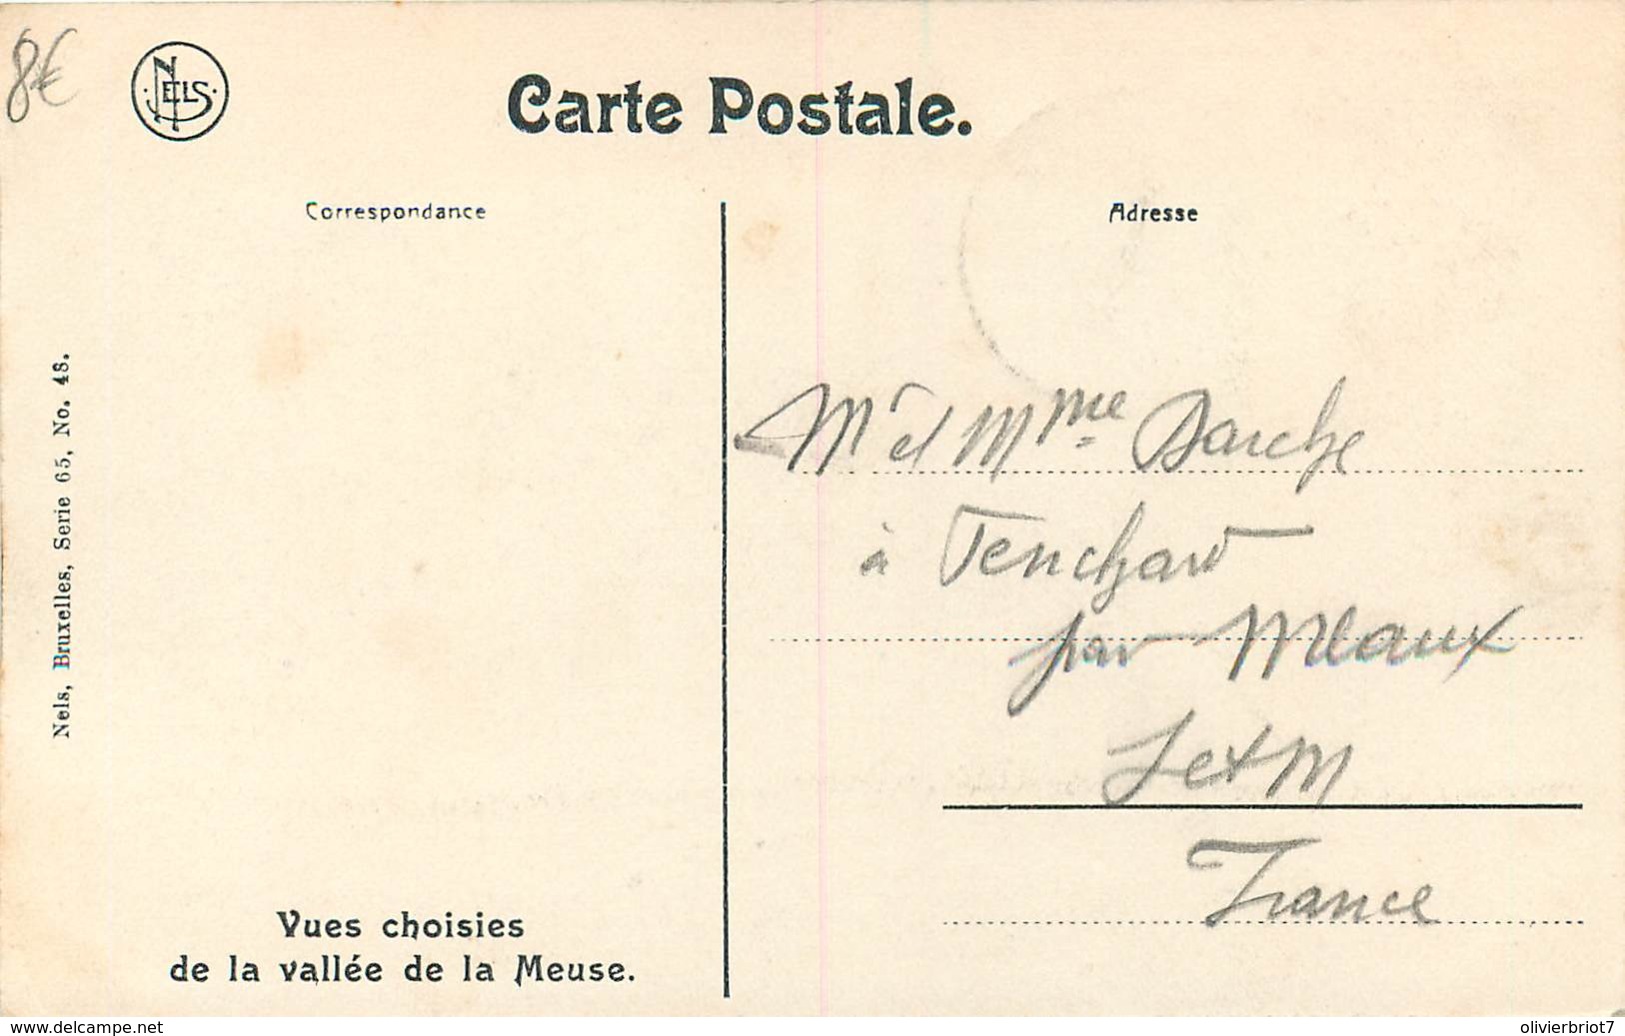 8€
NELS
Carte Postale.
Correspondance
Adresse
Nels, Bruxelles, Serie 65, No. 48.
Mr et Mme Darche
à Tenchard
par Meaux
S et M
France
Vues choisies
de la vallée de la Meuse.
www.delcampe.net
olivierbriot7